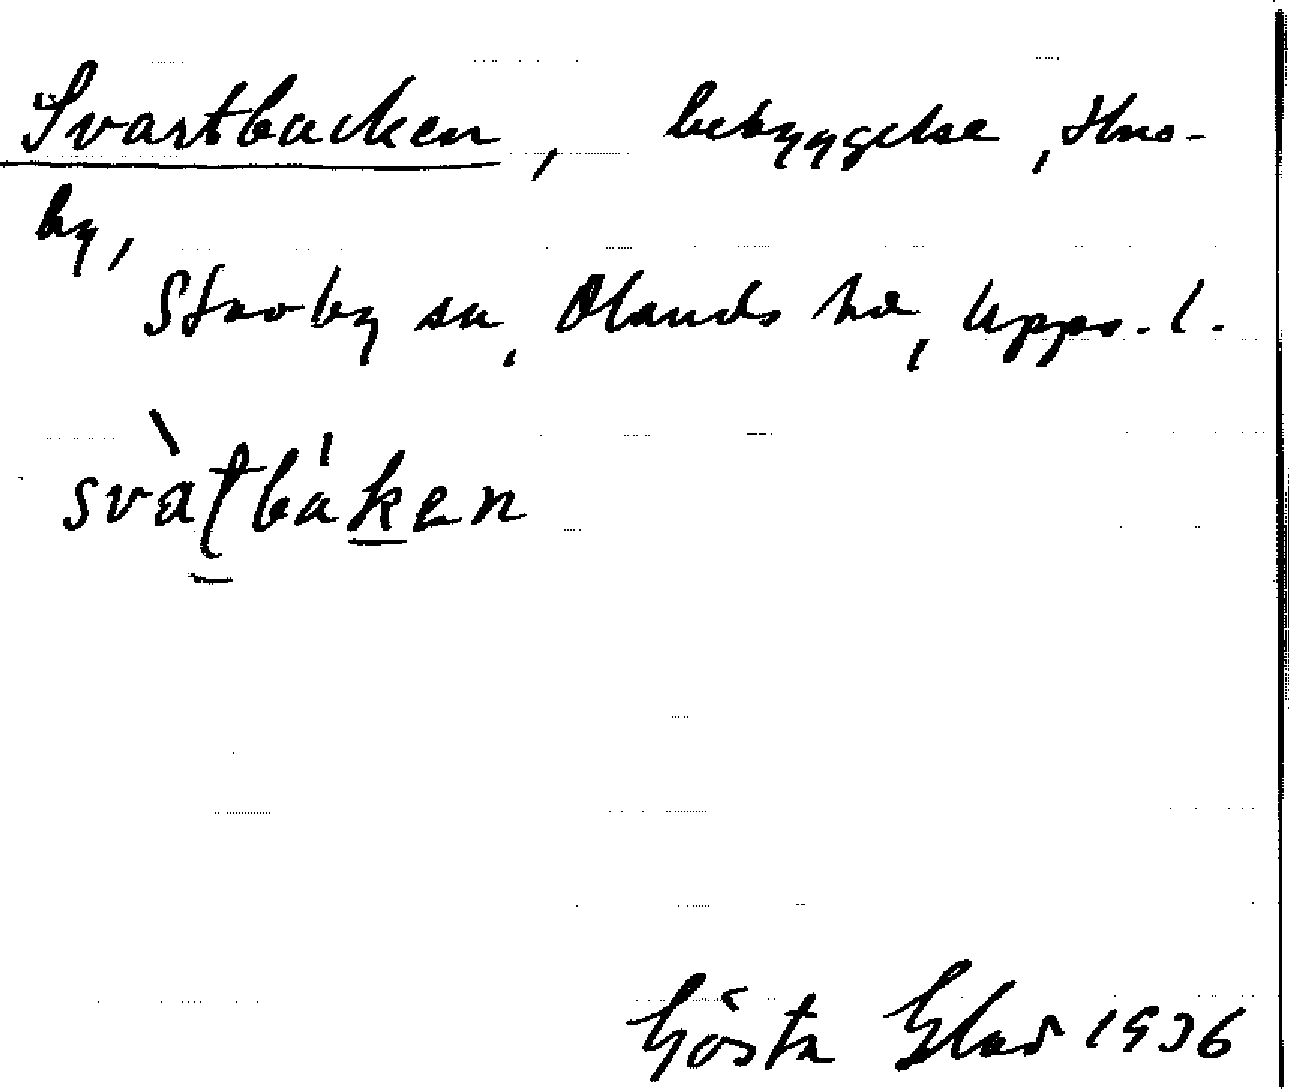 Svartbacken, bebyggelse, Hus-
by,
Stavby sn, Olands hd, Upps. l.
svàtba̍ken
Gösta 1936